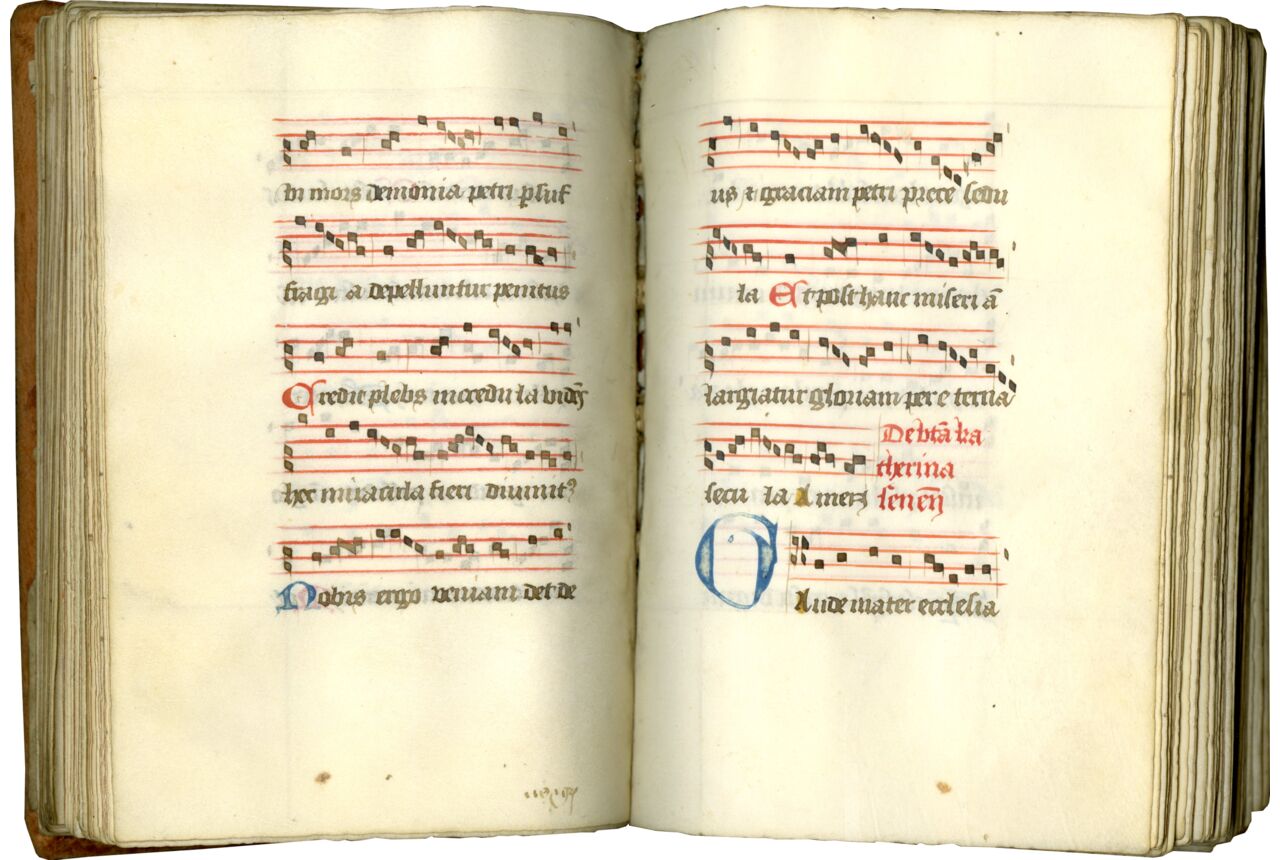 In mors demonia petri p̄suf
fragi a depelluntur penitus
Credit plebs incredu la vidēs
hec miracula fieri diuinitꝰ
Nobis ergo veniam det de
us ⁊ graciam petri prece sedu
la Et post hanc miseri ā
largiatur gloriam per e terna
secu la Amen
De btā ka
therina
senen̄
Gaude mater ecclesia